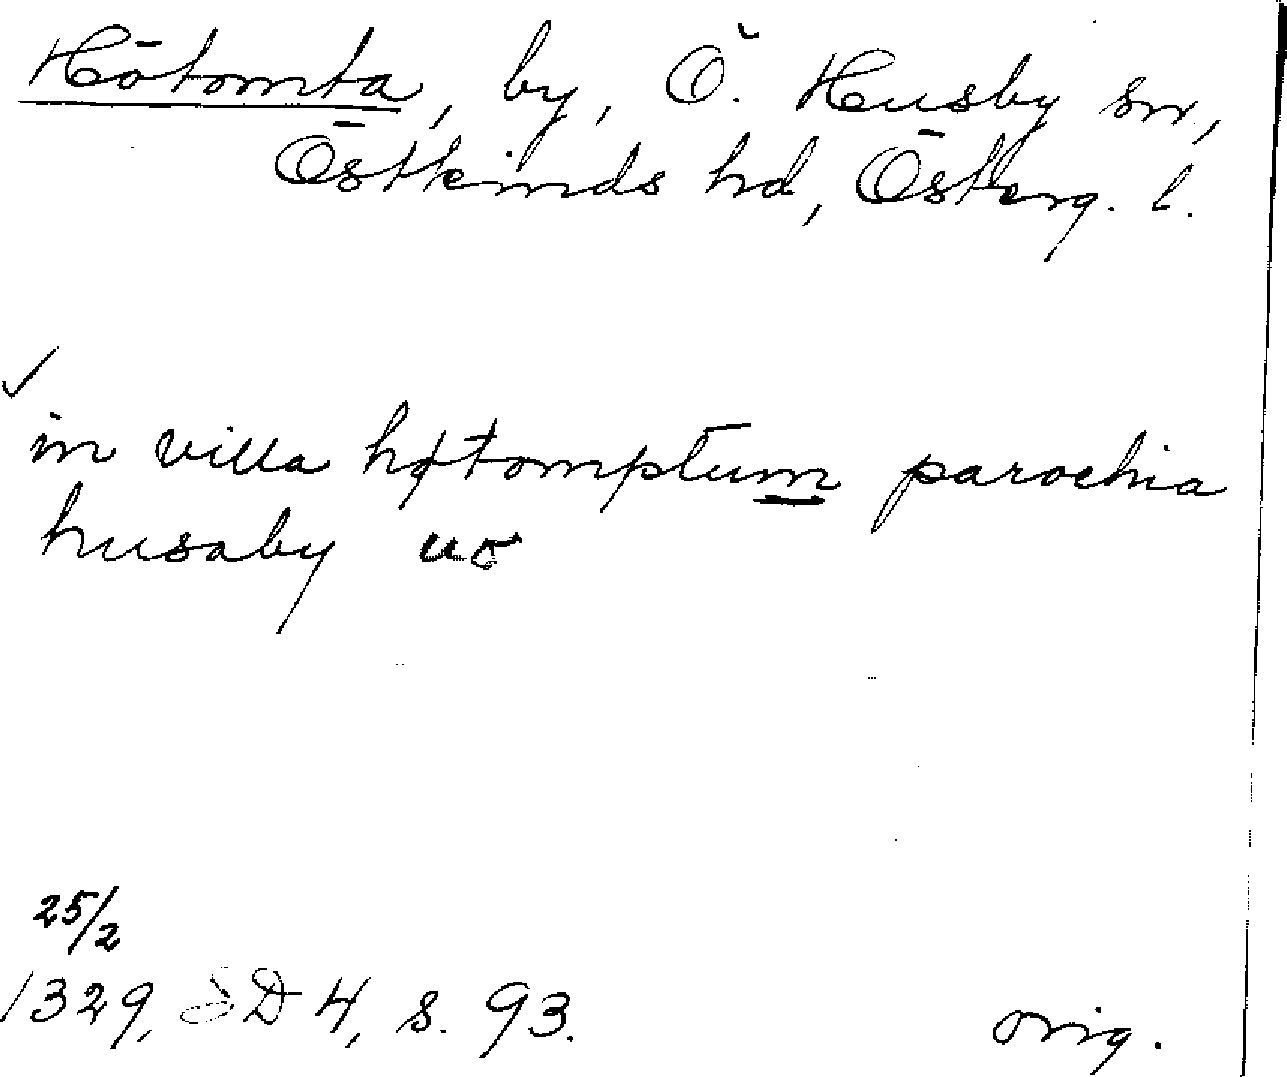 Hötomta, by, Ö. Husby sn,
Östkinds hd, Österg. l.
in villa høtomptum parochia
husaby
25/2
1329, SD 4, s. 93.
orig.